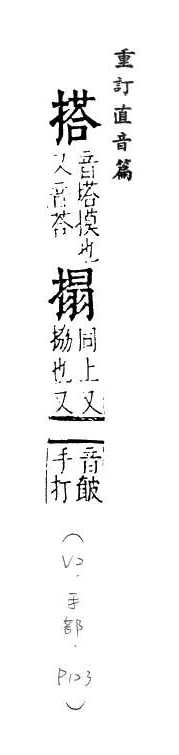 重訂直音篇
搭 音塔摸也
又音荅
搨 同上又
搚也又
音皷
手打
(V2.手部.P123)